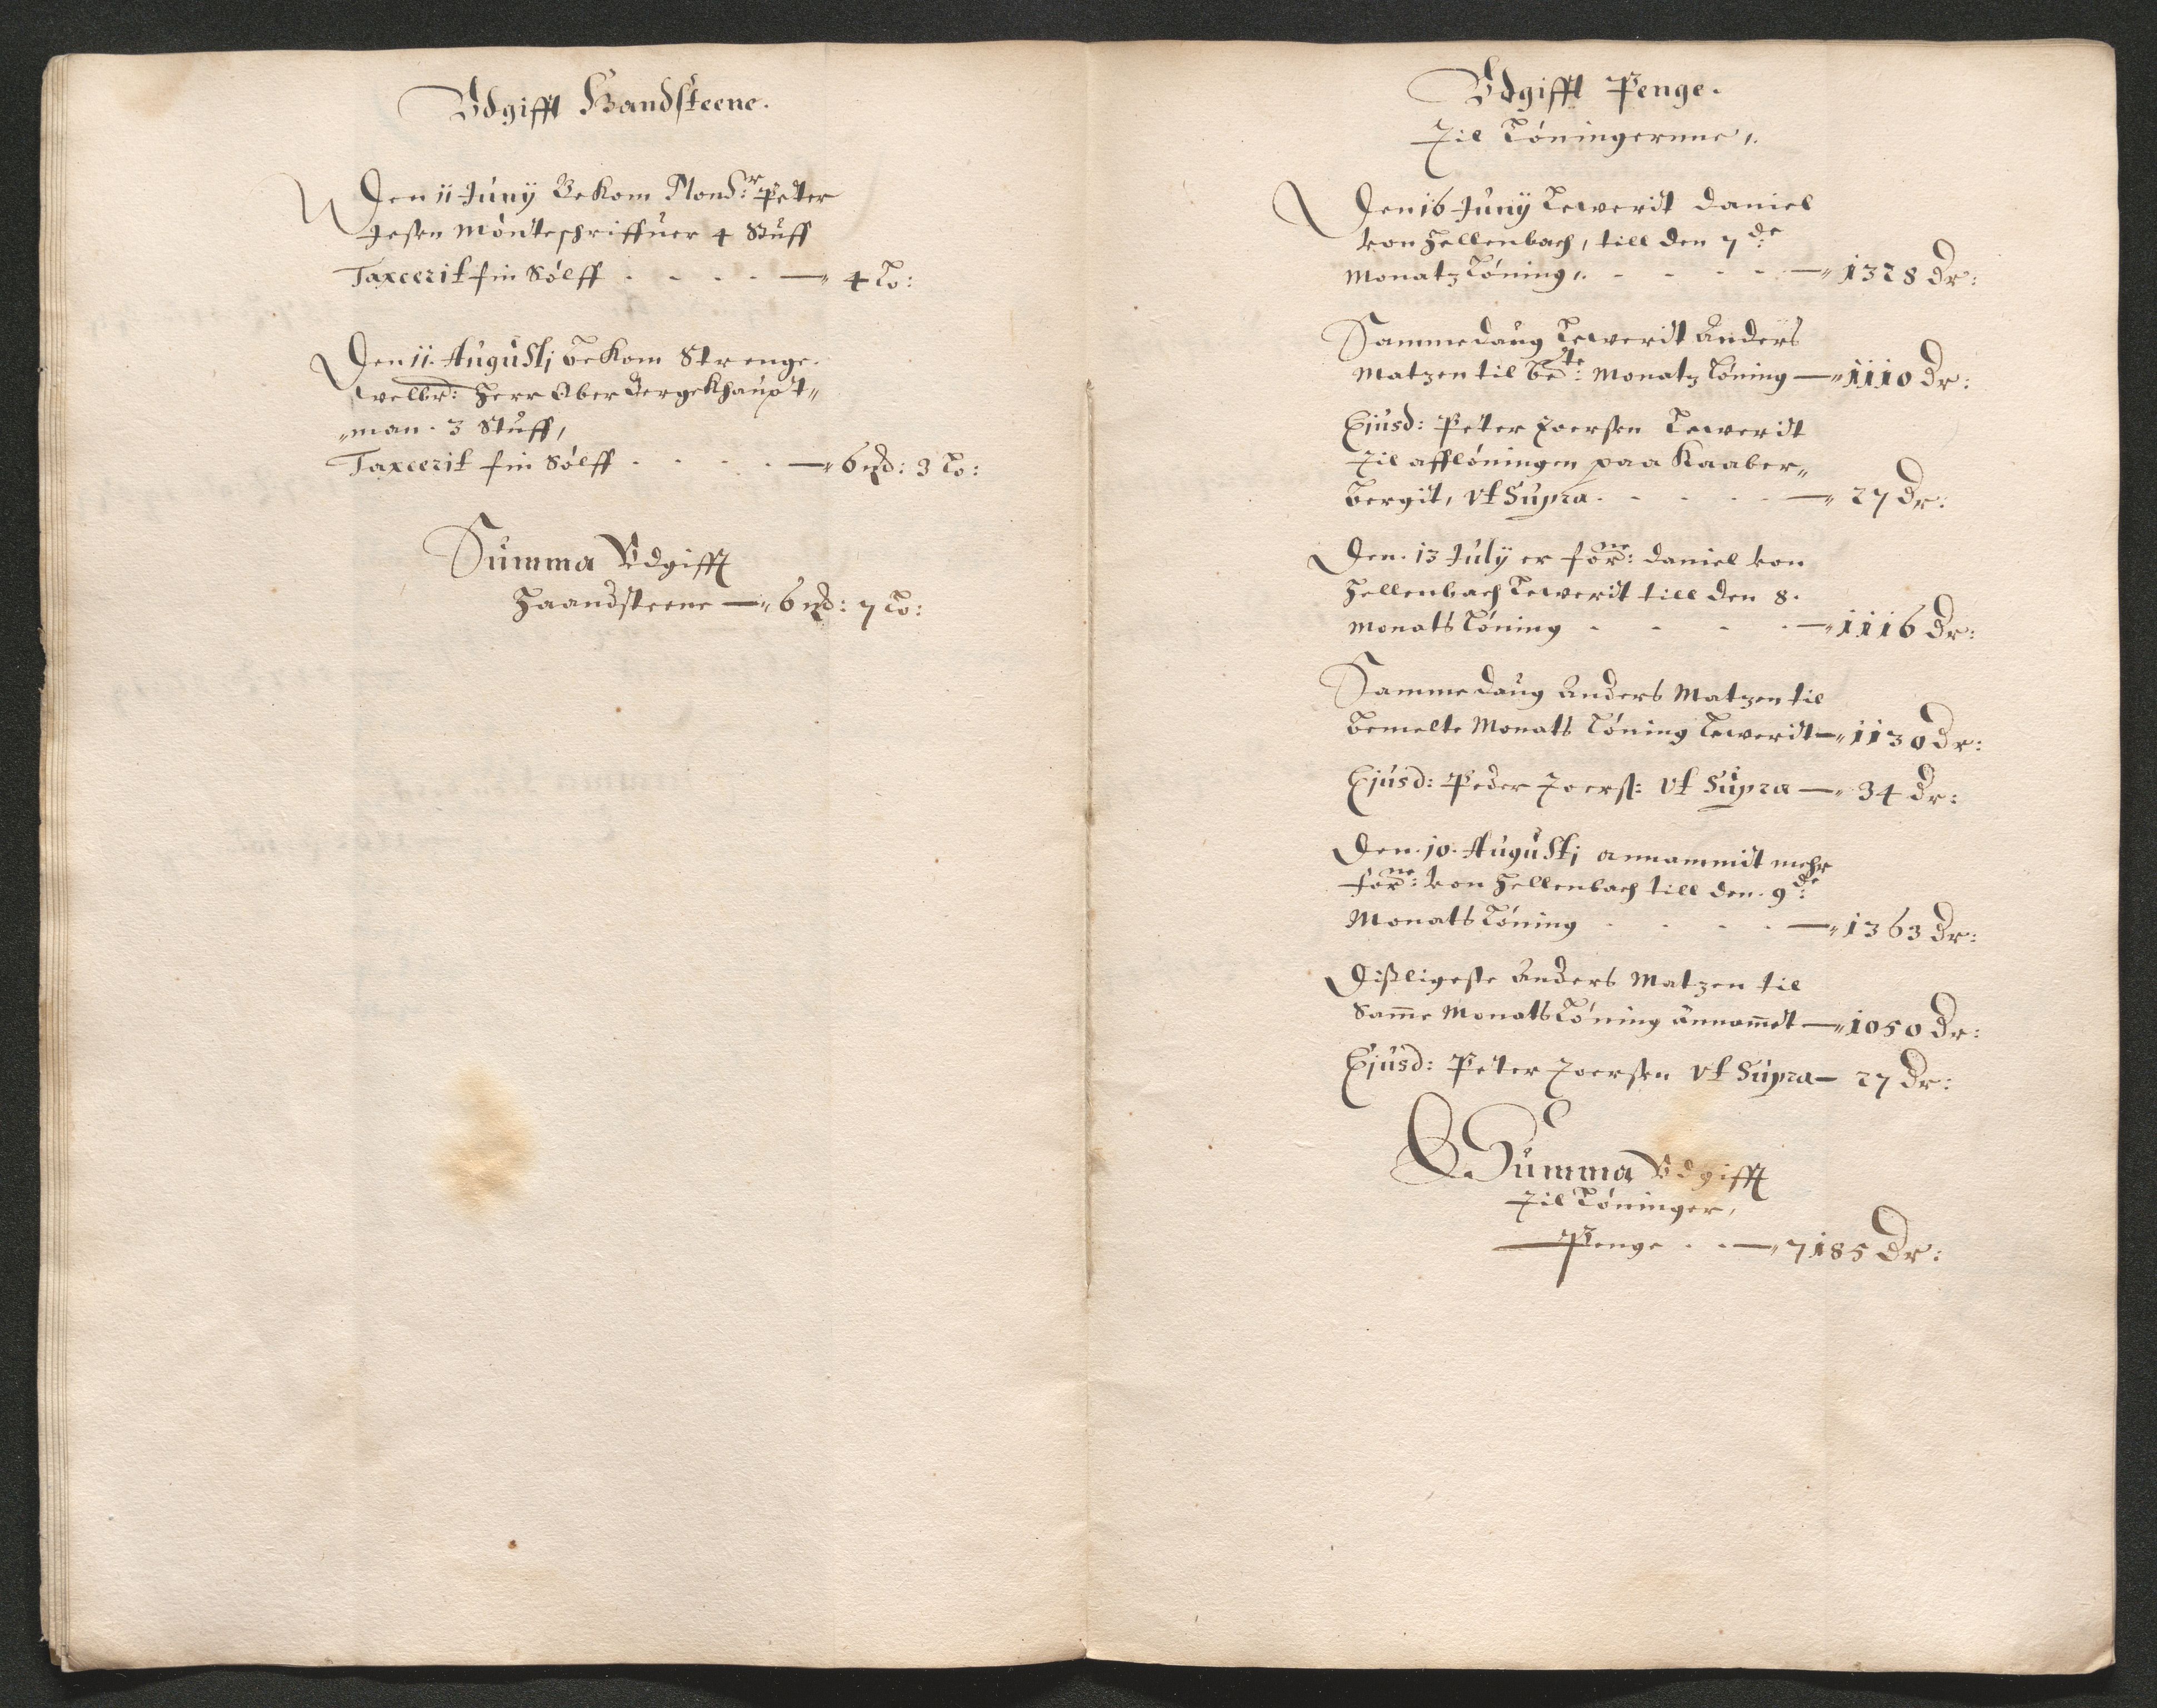 Vdgifft Handsteene.
Den 11 Junij Bekom Mons:r Peter
Jessen Mónteschriffuer 4 Stuff
Taxcerit fin Sólff . . . . — 4 Lo:
Den 11. Augustj bekom Strenge.
velbr: Herr Ober Bergekhaupt„
„man. 3 Stuff,
Taxcerit fin Sólff . . . . —„ 6 mk: 3 Lo:
Summa Vdgifft
Haandsteene —„ 6 mk: 7 Lo:
Vdgifft Penge.
Til Lóningernne,.
Den 16 Junij Leverit Daniel
von Hellenbach, till den 7de:
Monatz Lóning,. . . . . —„ 1328 Dr:
Samme daug Leverit Anders
Matzen til Bete: Monatz Lóning —„ 1110 Dr:
Ejusd: Peter Joersen Leverit
til afflóningen paa Kaaber„
bergit, vt Supra . . . . —„ 27 Dr:
Den. 13 Julij er forne: Daniel von
Hellenbach Leverit till den 8.
Monats Lóning . . . . —„ 1116 Dr:
Samme daug Anders Matzen til
bemelte Monats Lóning Leverit —„ 1130 Dr:
Ejusd: Peder Joers: vt Supra —„ 34 Dr:
Den. 10. Augustj annammit mehr
forne: von Hellenbach till den. 9de:
Monats Lóning . . . . —„ 1363 Dr:
Dissligeste Anders Matzen til
Samme Monats Lóning annammet —„ 1050 Dr:
Ejusd: Peter Joersen vt Supra — 27 Dr:
Summa Vdgifft
til Lóninger,
Penge . . —„ 7185 Dr: